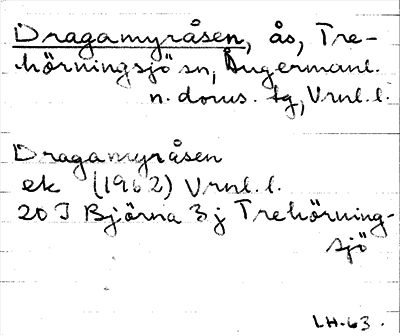 Dragamyråsen, ås, Tre-
hörningsjö sn, Ångermanl.
n. doms. tg, Vrnl. l.
Dragamyråsen
ek (1962) Vrnl. l.
20 I Björna 3 j Trehörning-
sjö
LH-63.